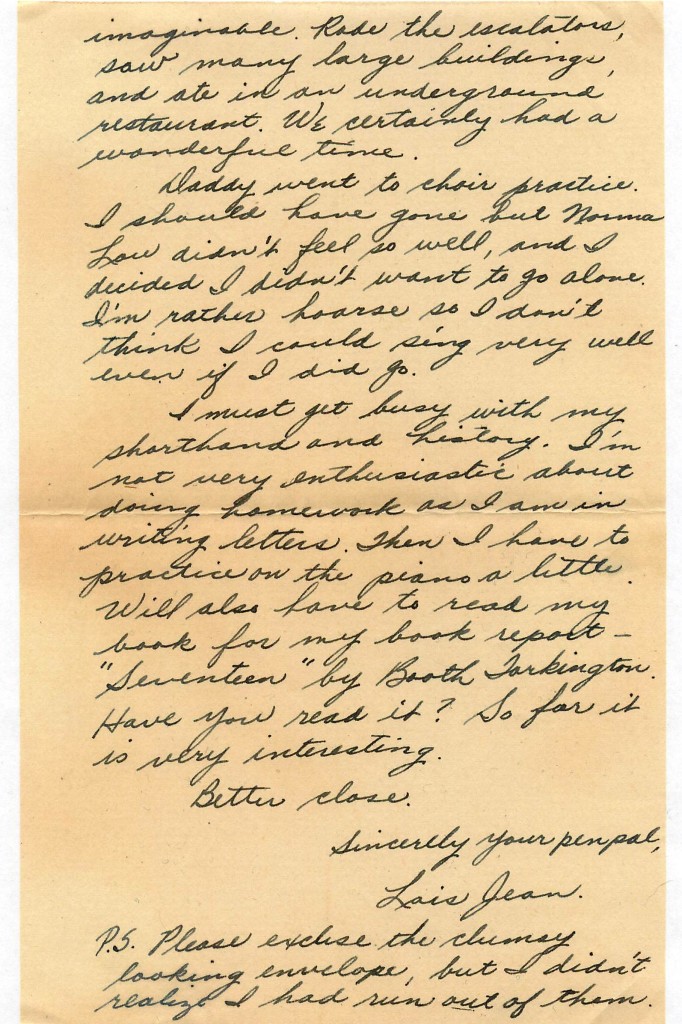 imaginable. Rode the escalators,
saw many large buildings,
and ate in an underground
restaurant. We certainly had a
wonderful time.
Daddy went to choir practice.
I should have gone but Norma
Lou didn't feel so well, and I
decided I didn't want to go alone.
I'm rather hoarse so I don't
think I could sing very well
even if I did go.
I must get busy with my
shorthand and history. I'm
not very enthusiastic about
doing homework as I am in
writing letters. Then I have to
practice on the piano a little.
Will also have to read my
book for my book report –
"Seventeen" by Booth Tarkington.
Have you read it? So far it
is very interesting.
Better close.
Sincerely your penpal,
Lois Jean.
P.S. Please excuse the clumsy
looking envelope, but I didn't
realize I had run out of them.